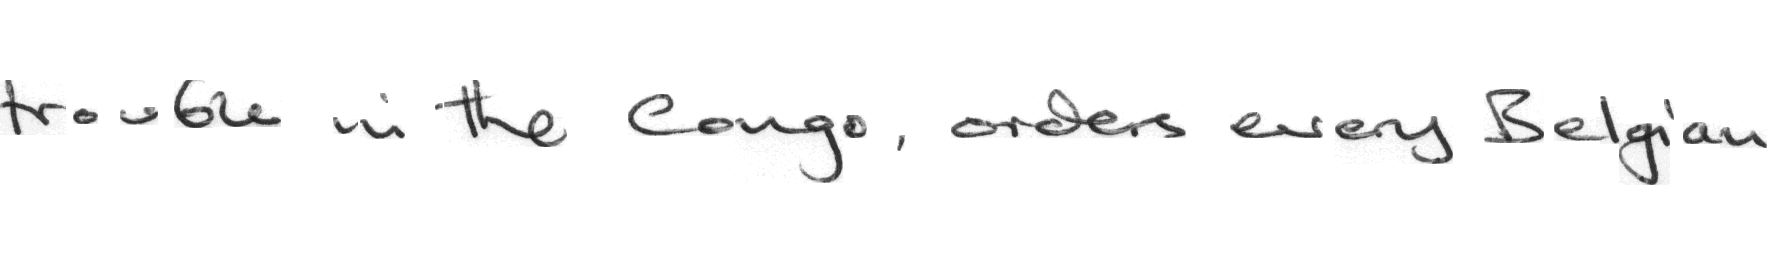 trouble in the Congo, orders every Belgian